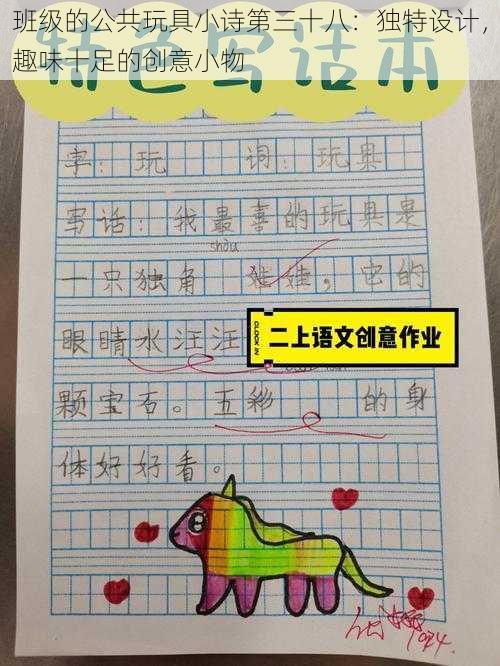 班级的公共玩具小诗第三十八：独特设计，
趣味十足的创意小物
特色写话本
字：玩 词：玩具
写话：我最喜的玩具是
shòu
一只独角 娃娃，它的
眼睛水汪汪
二上语文创意作业
CLOCK IN
颗宝石。五彩 的身
体好好看。